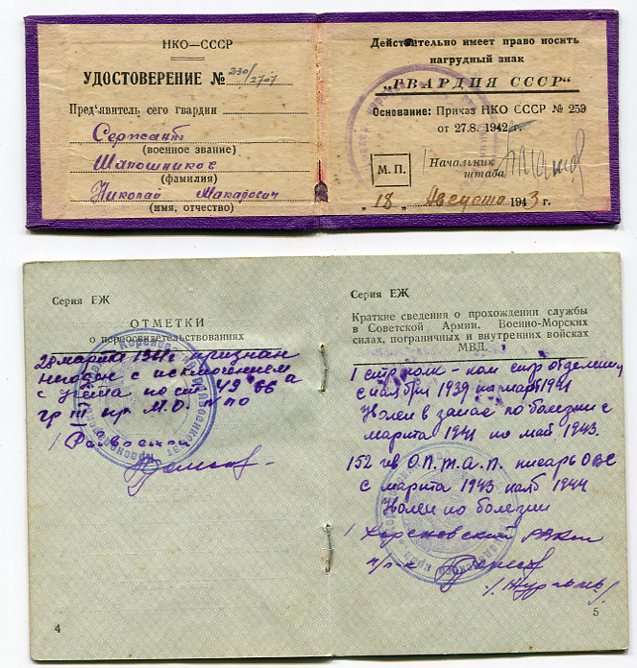 НКО—СССР
УДОСТОВЕРЕНИЕ № 230/2707
Пред'явитель сего гвардии
Сержант
(военное звание)
Шапошников
(фамилия)
Николай Макарович
(имя, отчество)
Действительно имеет право носить
нагрудный знак
„ГВАРДИЯ СССР“
Основание: Приказ НКО СССР № 259
от 27.8. 1942 г.
М. П.
Начальник
штаба
„18„ Августа 1943 г.
Серия ЕЖ
ОТМЕТКИ
о переосвидетельствованиях
28 марта признан
негоден с исключением
с учета по ст. 49 66 а
гр III пр. М.О.
4
Серия ЕЖ
Краткие сведения о прохождении службы
в Советской Армии, Военно-Морских
силах, пограничных и внутренних войсках
МВД.
1 стр полк - ком стр отделения
с ноября 1939 по март 1941
Уволен в запас по болезни с
марта 1941 по май 1943.
152 гв О.П.Т.А.П. писарь
с марта 1943 нояб 1944
Уволен по болезни
Кореновский
п/п-к
5